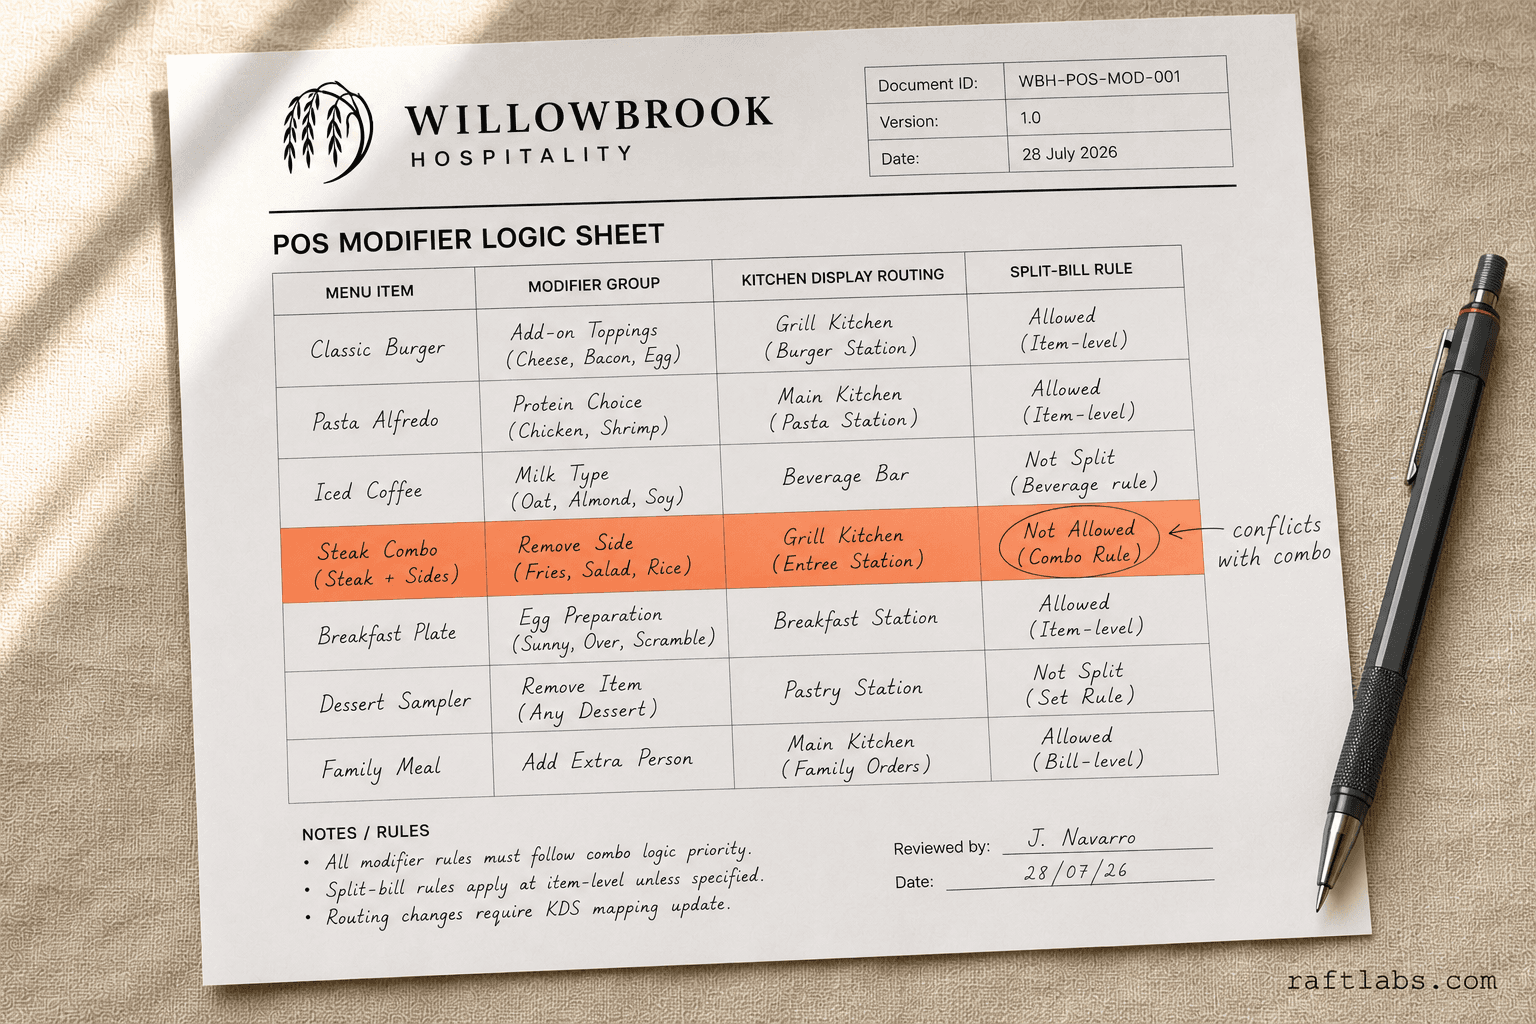 WILLOWBROOK
HOSPITALITY
Document ID: WBH-POS-MOD-001
Version: 1.0
Date: 28 July 2026
POS MODIFIER LOGIC SHEET
MENU ITEM MODIFIER GROUP KITCHEN DISPLAY ROUTING SPLIT-BILL RULE
Classic Burger
Add-on Toppings
(Cheese, Bacon, Egg)
Grill Kitchen
(Burger Station)
Allowed
(Item-level)
Pasta Alfredo
Protein Choice
(Chicken, Shrimp)
Main Kitchen
(Pasta Station)
Allowed
(Item-level)
Iced Coffee
Milk Type
(Oat, Almond, Soy)
Beverage Bar
Not Split
(Beverage rule)
Steak Combo
(Steak + Sides)
Remove Side
(Fries, Salad, Rice)
Grill Kitchen
(Entree Station)
Not Allowed
(Combo Rule)
conflicts
with combo
Breakfast Plate
Egg Preparation
(Sunny, Over, Scramble)
Breakfast Station
Allowed
(Item-level)
Dessert Sampler
Remove Item
(Any Dessert)
Pastry Station
Not Split
(Set Rule)
Family Meal
Add Extra Person
Main Kitchen
(Family Orders)
Allowed
(Bill-level)
NOTES / RULES
• All modifier rules must follow combo logic priority.
• Split-bill rules apply at item-level unless specified.
• Routing changes require KDS mapping update.
Reviewed by: J. Navarro
Date: 28/07/26
raftlabs.com